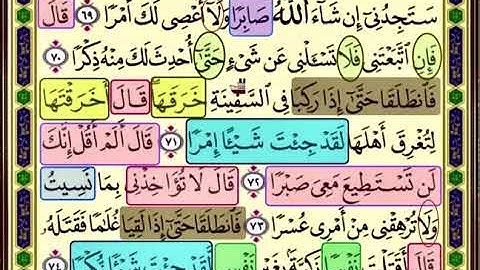 سَتَجِدُنِىٓ إِن شَآءَ ٱللَّهُ صَابِرًا وَلَآ أَعْصِى لَكَ أَمْرًا ٦٩ قَالَ
فَإِنِ ٱتَّبَعْتَنِى فَلَا تَسْـَٔلْنِى عَن شَىْءٍ حَتَّىٰٓ أُحْدِثَ لَكَ مِنْهُ ذِكْرًا ٧٠
فَٱنطَلَقَا حَتَّىٰٓ إِذَا رَكِبَا فِى ٱلسَّفِينَةِ خَرَقَهَا قَالَ أَخَرَقْتَهَا
لِتُغْرِقَ أَهْلَهَا لَقَدْ جِئْتَ شَيْـًٔا إِمْرًا ٧١ قَالَ أَلَمْ أَقُلْ إِنَّكَ
لَن تَسْتَطِيعَ مَعِىَ صَبْرًا ٧٢ قَالَ لَا تُؤَاخِذْنِى بِمَا نَسِيتُ
وَلَا تُرْهِقْنِى مِنْ أَمْرِى عُسْرًا ٧٣ فَٱنطَلَقَا حَتَّىٰٓ إِذَا لَقِيَا غُلَٰمًا فَقَتَلَهُۥ
قَالَ أَقَتَلْتَ نَفْسًا زَكِيَّةًۢ بِغَيْرِ نَفْسٍ لَّقَدْ جِئْتَ شَيْـًٔا نُّكْرًا ٧٤